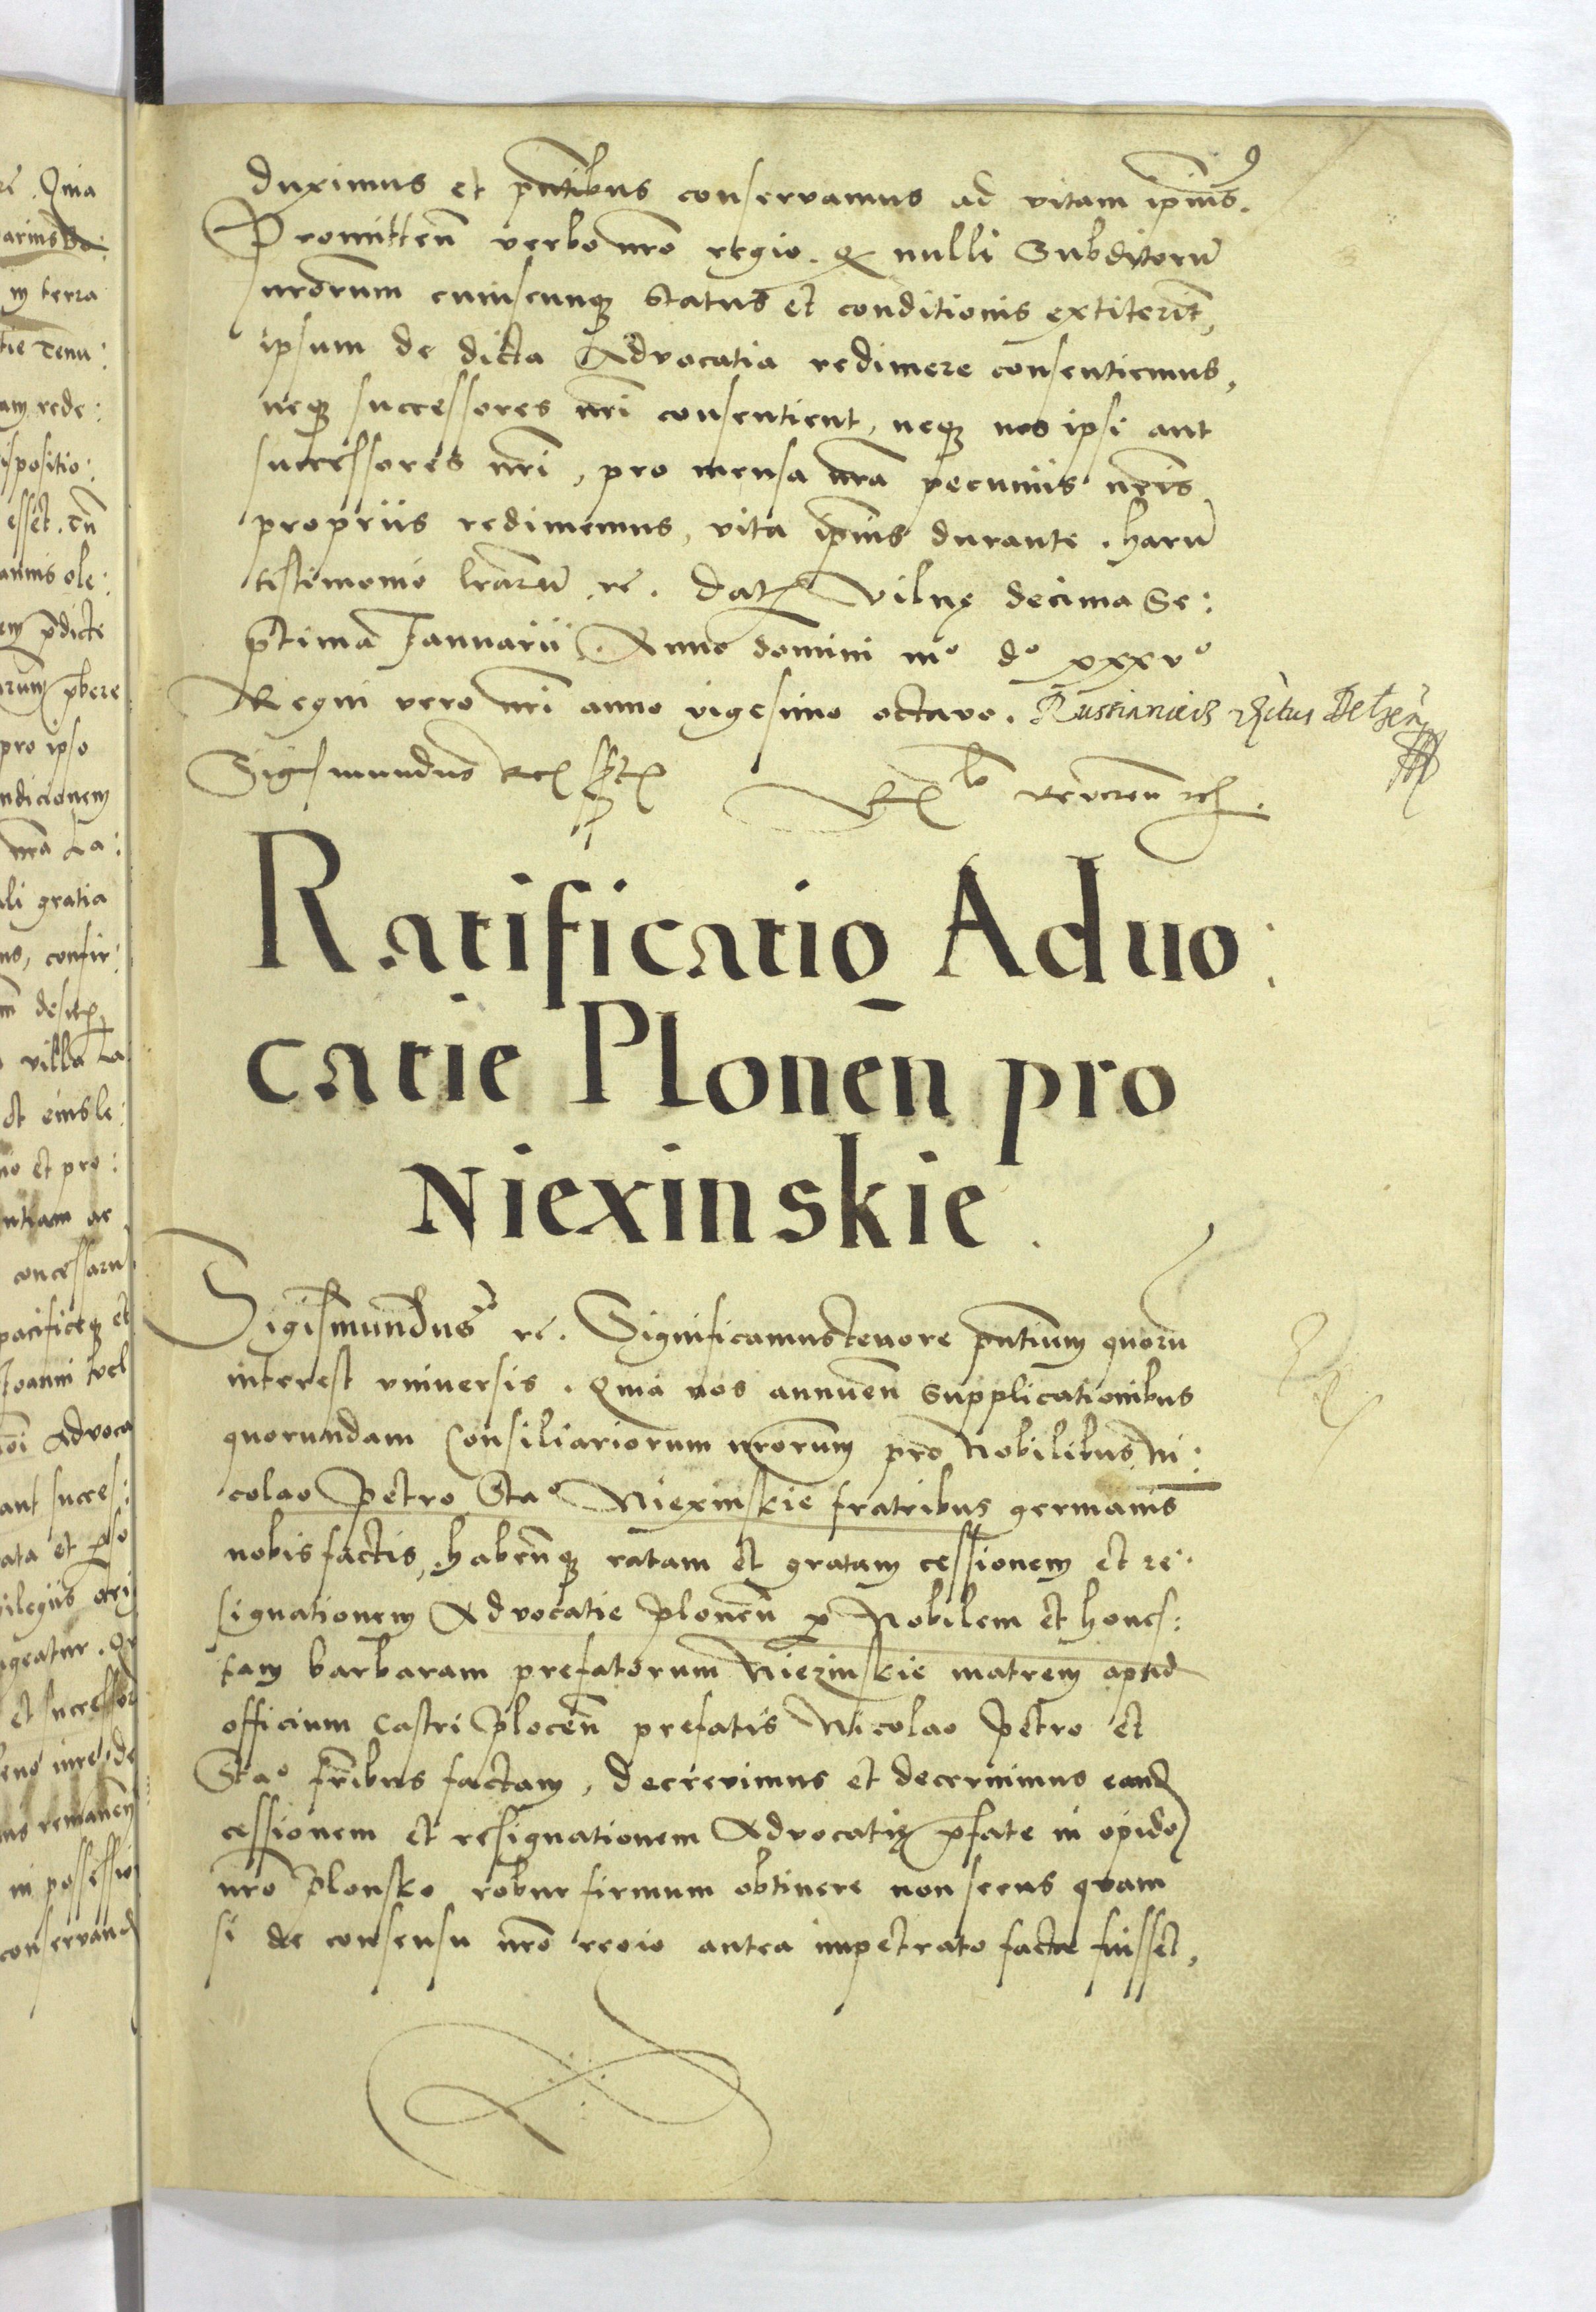 duximus et pntibus conservamus ad vitam ipius.
Promitten verbo nro regio. q nulli Subditoru
nrorum cuiuscunq status et conditionis extiterit,
ipsum de dicta Advocatia redimere consentiemus,
neq successores nri consentient, neq nos ipsi aut
successores nri, pro mensa nra pecuniis nris
propriis redimemus, vita ipius durante. Haru
testimonio lraru rc. Dat Vilnę decima Se:
ptima Januarii. Anno domini mº dº xxxvº
Regni vero nri anno vigesimo octavo.
Sigismundus Rex sst Rlo Reveren
Ratificatio Aduo:
catie Plonen pro
Niexinskie.
Sigismundus rc. Significamus tenore pntium quoru
interest universis. Quia nos annuen supplicationibus
quorundam Consiliariorum nrorum pro Nobilibus Ni:
colao Petro Staº Niexinskie fratribus germanis
nobis factis, habenq ratam et gratam cessionem et re:
signationem Advocatie Plonen p Nobilem et hones:
tam barbaram prefatorum Niezinskie matrem apud
officium Castri Plocen prefatis Nicolao Petro et
Staº fribus factam, decrevimus et decernimus eand
cessionem et resignationem Advocatię pfate in opido
nro Plonsko robur firmum obtinere non secus quam
si de consensu nro regio antea impetrato facta fuisset,
re. Quia
in terra
tie Tenu:
am rede:
ispositio:
esset. cu
annis ole:
em pdicte
pbere
pro ipso
ndicionem
nra La:
ali gratia
ns, confir:
villa La
et eius le:
no et pro:
concessaru
pacificeq et
Joanni vel
Advoca
aut succes:
ata et pso
vilegiis
et successor
remanen
in possessio
conservand